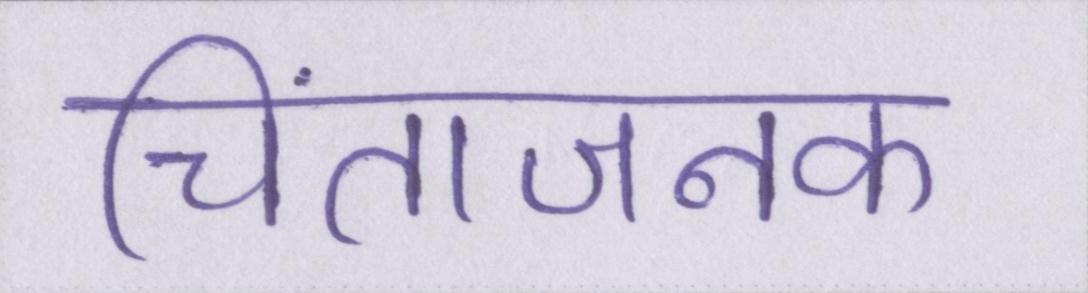 चिंताजनक